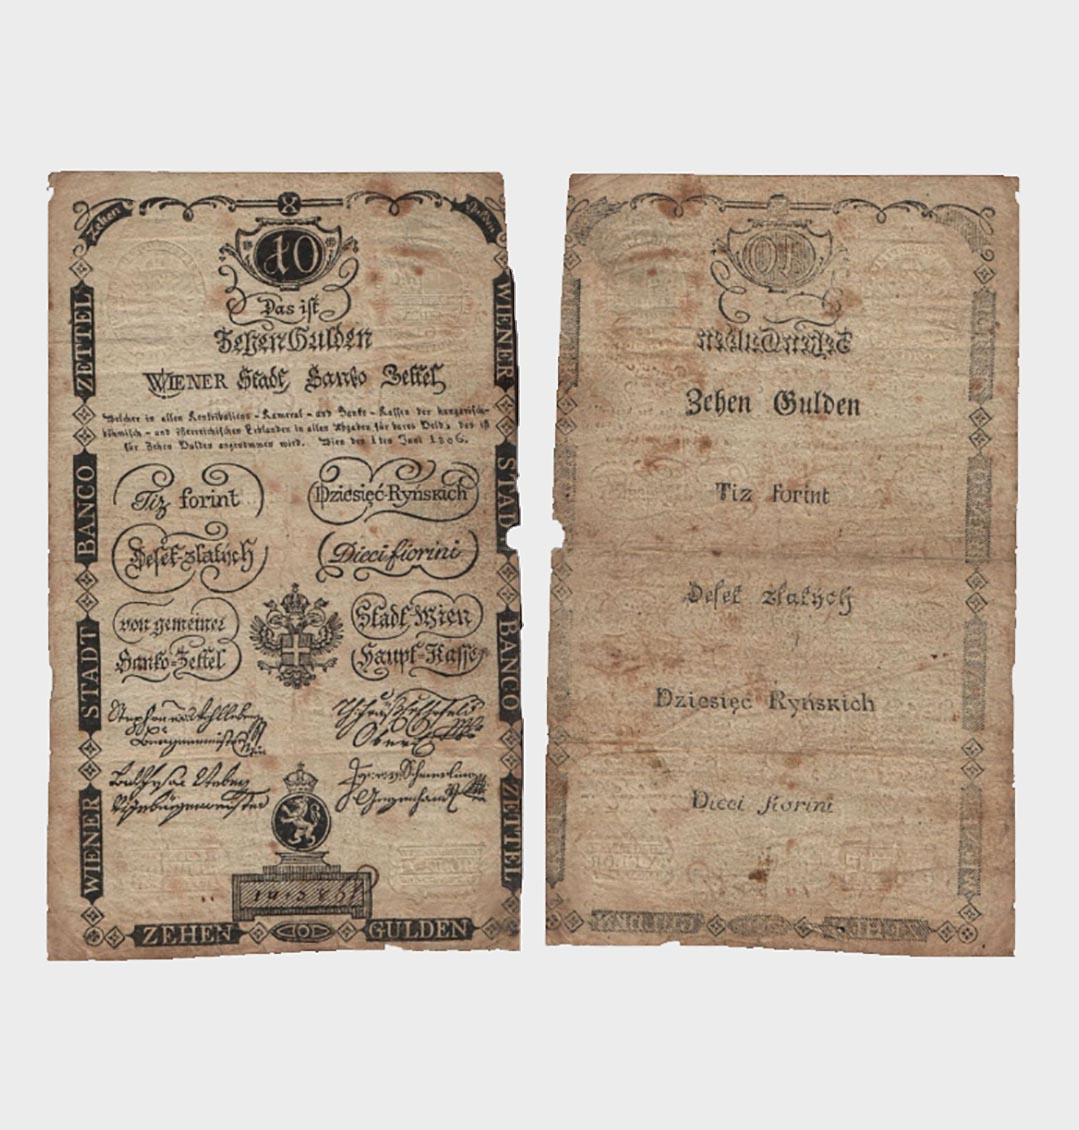 Zehen
X
Gulden
10
Das ist
Zehen Gulden
WIENER Stadt Banko Zettel
Welcher in allen Kontributions-Kameral-und Banko-Kassen der hungarisch-
böhmisch-und österreichischen Erblanden in allen Abgaben für bares Geld, das ist
für Zehen Gulden angenommen wird. Wien den 1ten Juni 1806.
Tiz forint
Dziesięć-Ryńskich
Deset-zlatých
Dieci fiorini
von gemeiner
Stadt Wien
Banko-Zettel
Haupt-Kasse
WIENER STADT BANCO ZETTEL
WIENER STADT BANCO ZETTEL
ZEHEN
GULDEN
Zehen Gulden
Tiz forint
Deset zlatých
Dziesięć Ryńskich
Dieci fiorini